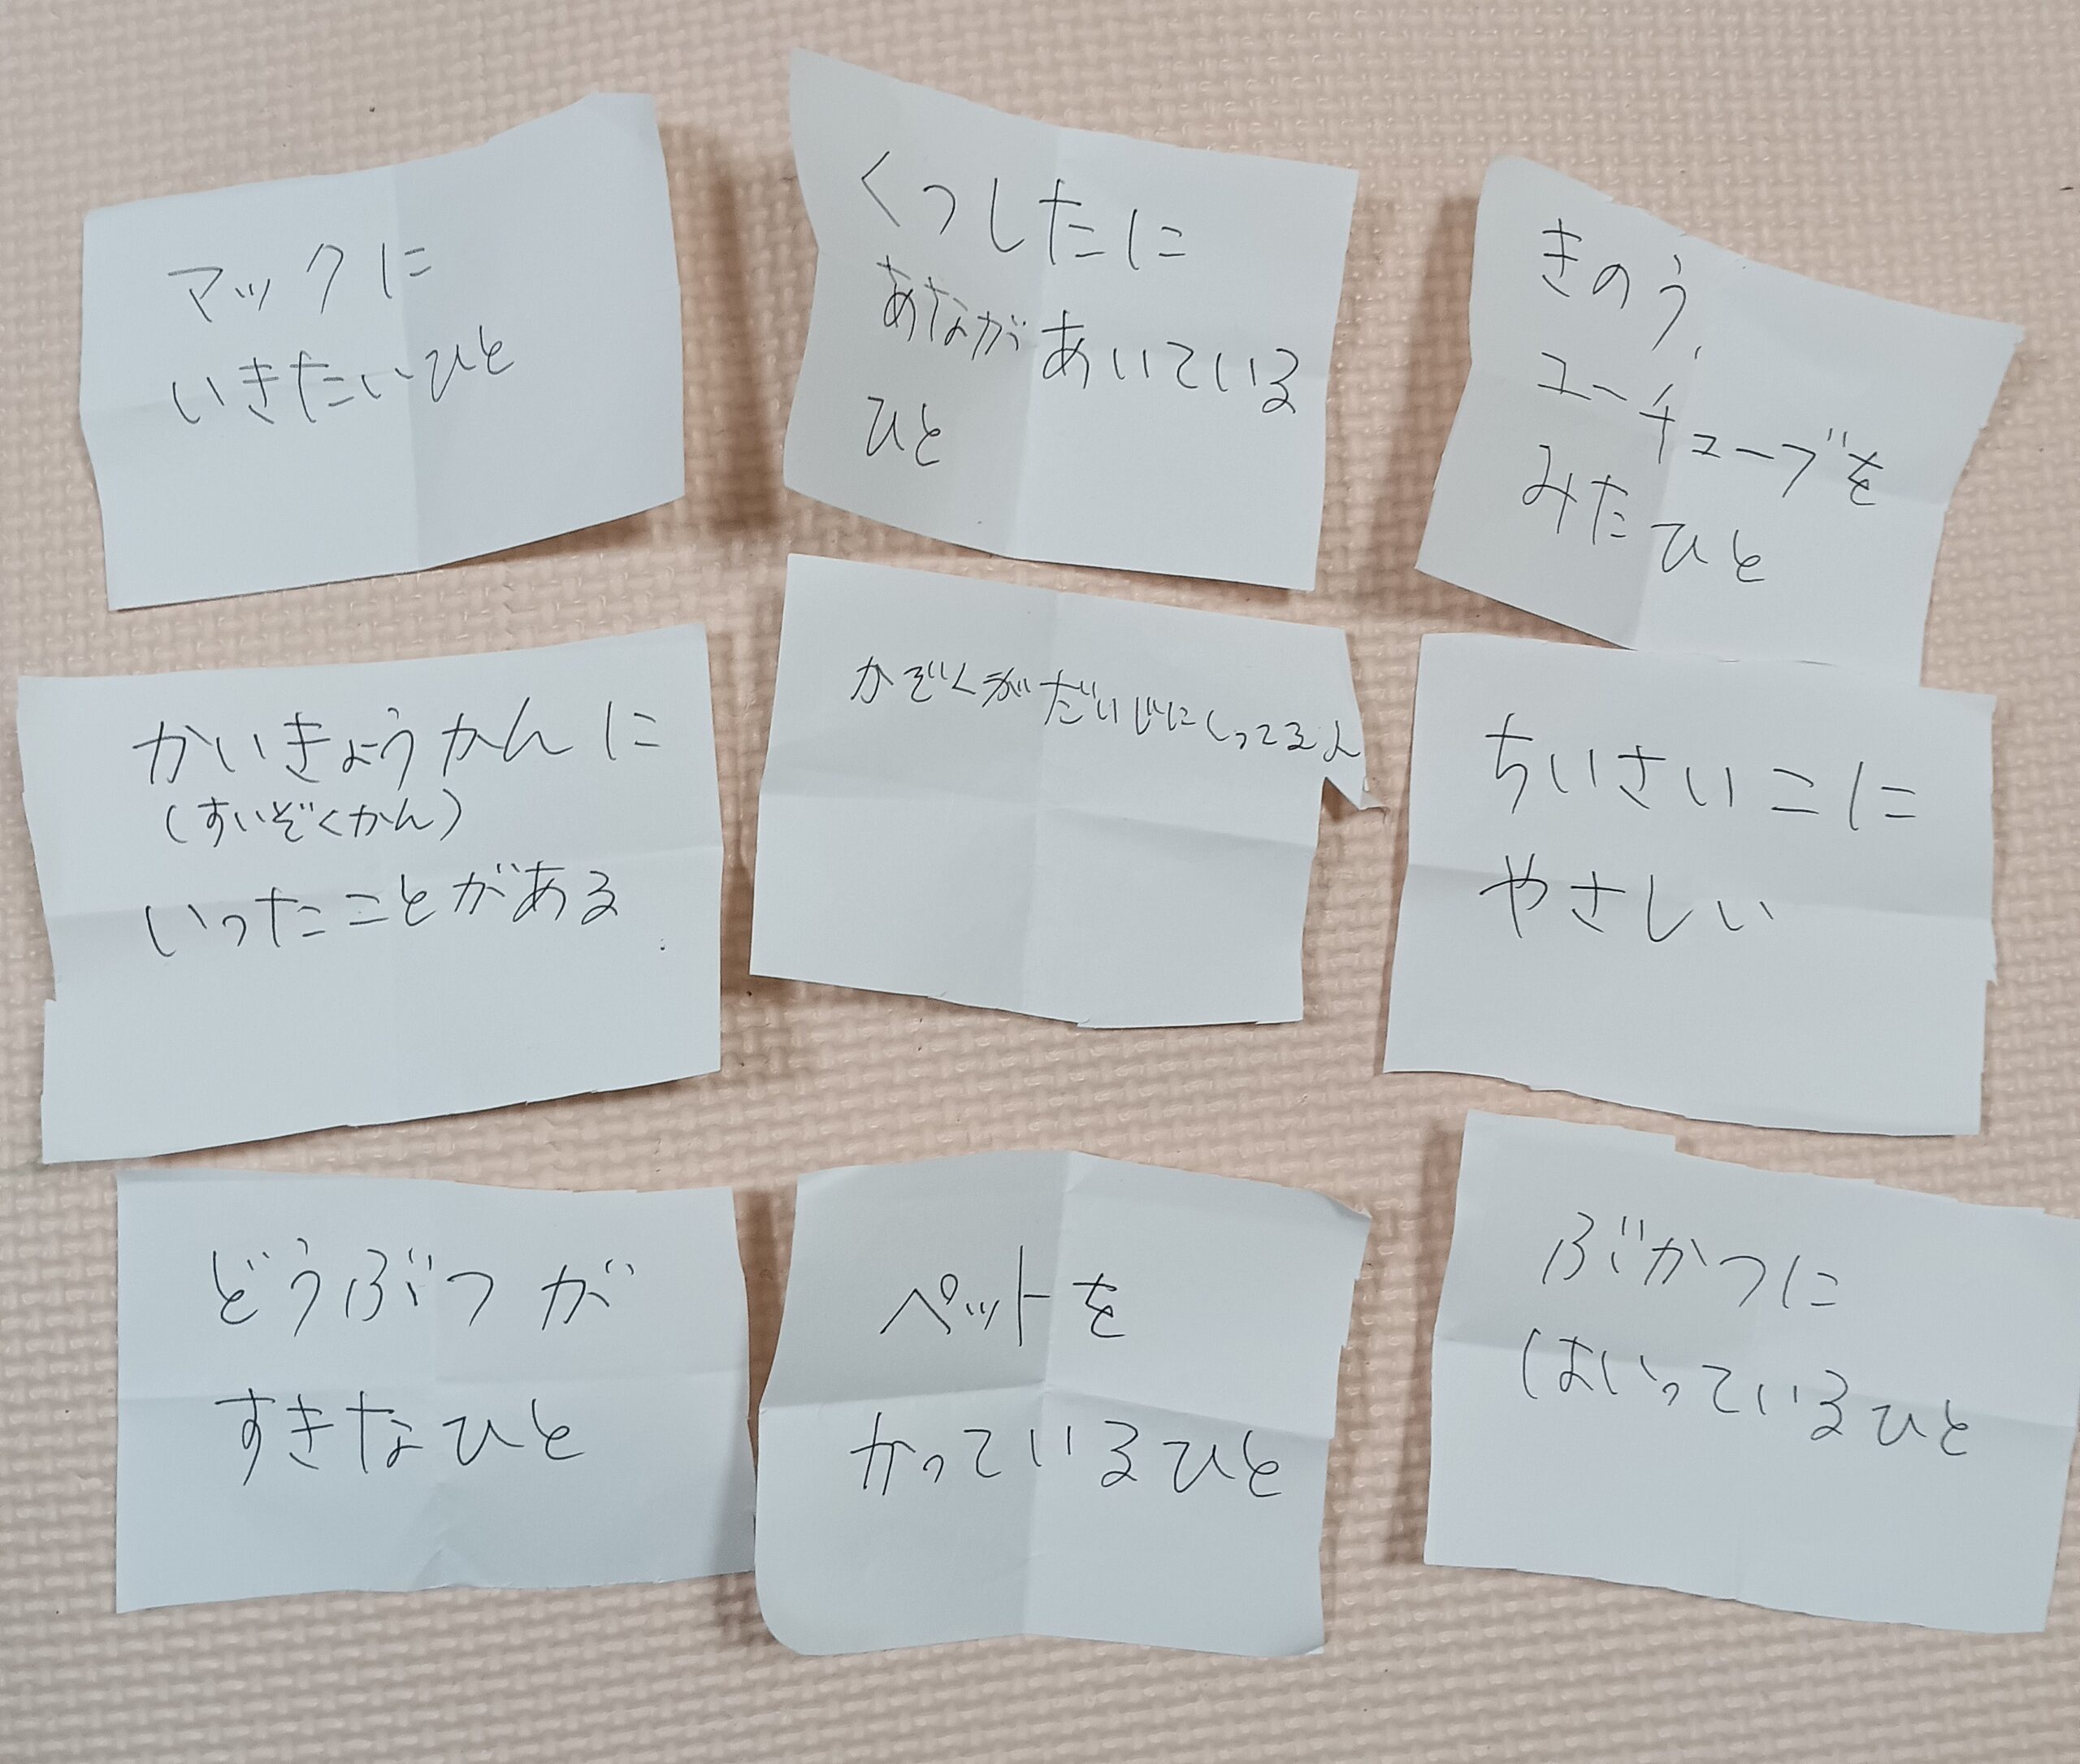 マックに
いきたいひと
くつしたに
あながあいている
ひと
きのう、
ユーチューブを
みたひと
かいきょうかんに
(すいぞくかん)
いったことがある
かぞくがだいじにしってる人
ちいさいこに
やさしい
どうぶつが
すきなひと
ペットを
かっているひと
ぶかつに
はいっているひと